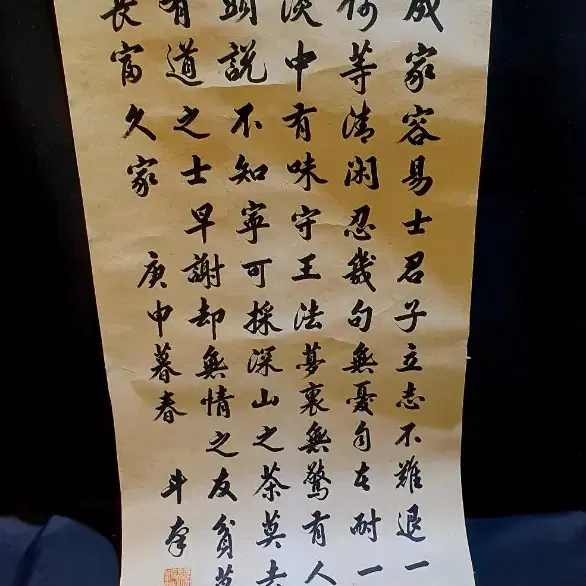 成家容易士君子立志不難退一
何等清閑忍幾句無憂自在耐一
淡中有味守王法夢裏無驚有人
頭說不知寧可採深山之茶莫去
有道之士早謝却無情之友貧莫
長富久家
庚申暮春
斗